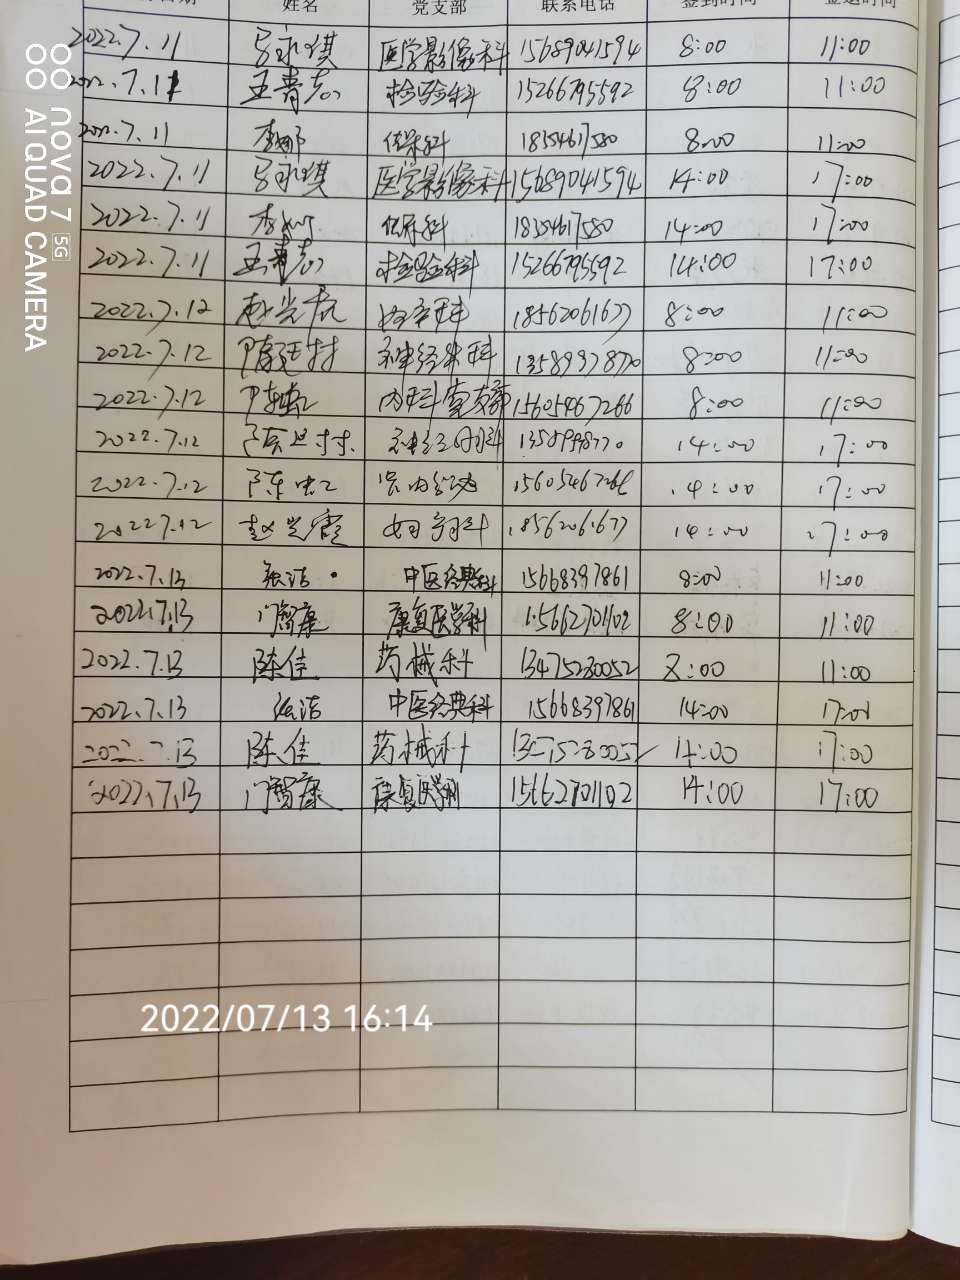 姓名 党支部 联系电话 签到时间 签退时间
2022.7.11 马永琪 医学影像科 15689041594 8:00 11:00
2022.7.11 王青志 检验科 15266795592 8:00 11:00
2022.7.11 李 保科 18354617580 8:00 11:00
2022.7.11 马永琪 医学影像科 15689041594 14:00 17:00
2022.7.11 李 保科 18354617580 14:00 17:00
2022.7.11 王青志 检验科 15266795592 14:00 17:00
2022.7.12 赵兰霞 妇产科 18562061677 8:00 11:00
2022.7.12 陈廷村 神经外科 13589937870 8:00 11:00
2022.7.12 陈忠 内科党支部 15605467266 8:00 11:00
2022.7.12 14:00 17:00
2022.7.12 陈忠 15605467266 14:00 17:00
2022.7.12 赵兰霞 妇产科 18562061677 14:00 17:00
2022.7.13 张洁 中医经典科 15668397861 8:00 11:00
2022.7.13 门智康 康复医学科 15662701102 8:00 11:00
2022.7.13 陈佳 药械科 13475230052 8:00 11:00
2022.7.13 张洁 中医经典科 15668397861 14:00 17:00
2022.7.13 陈佳 药械科 14:00 17:00
2022.7.13 门智康 康复医学科 15662701102 14:00 17:00
nova 7 5G
AI QUAD CAMERA
2022/07/13 16:14